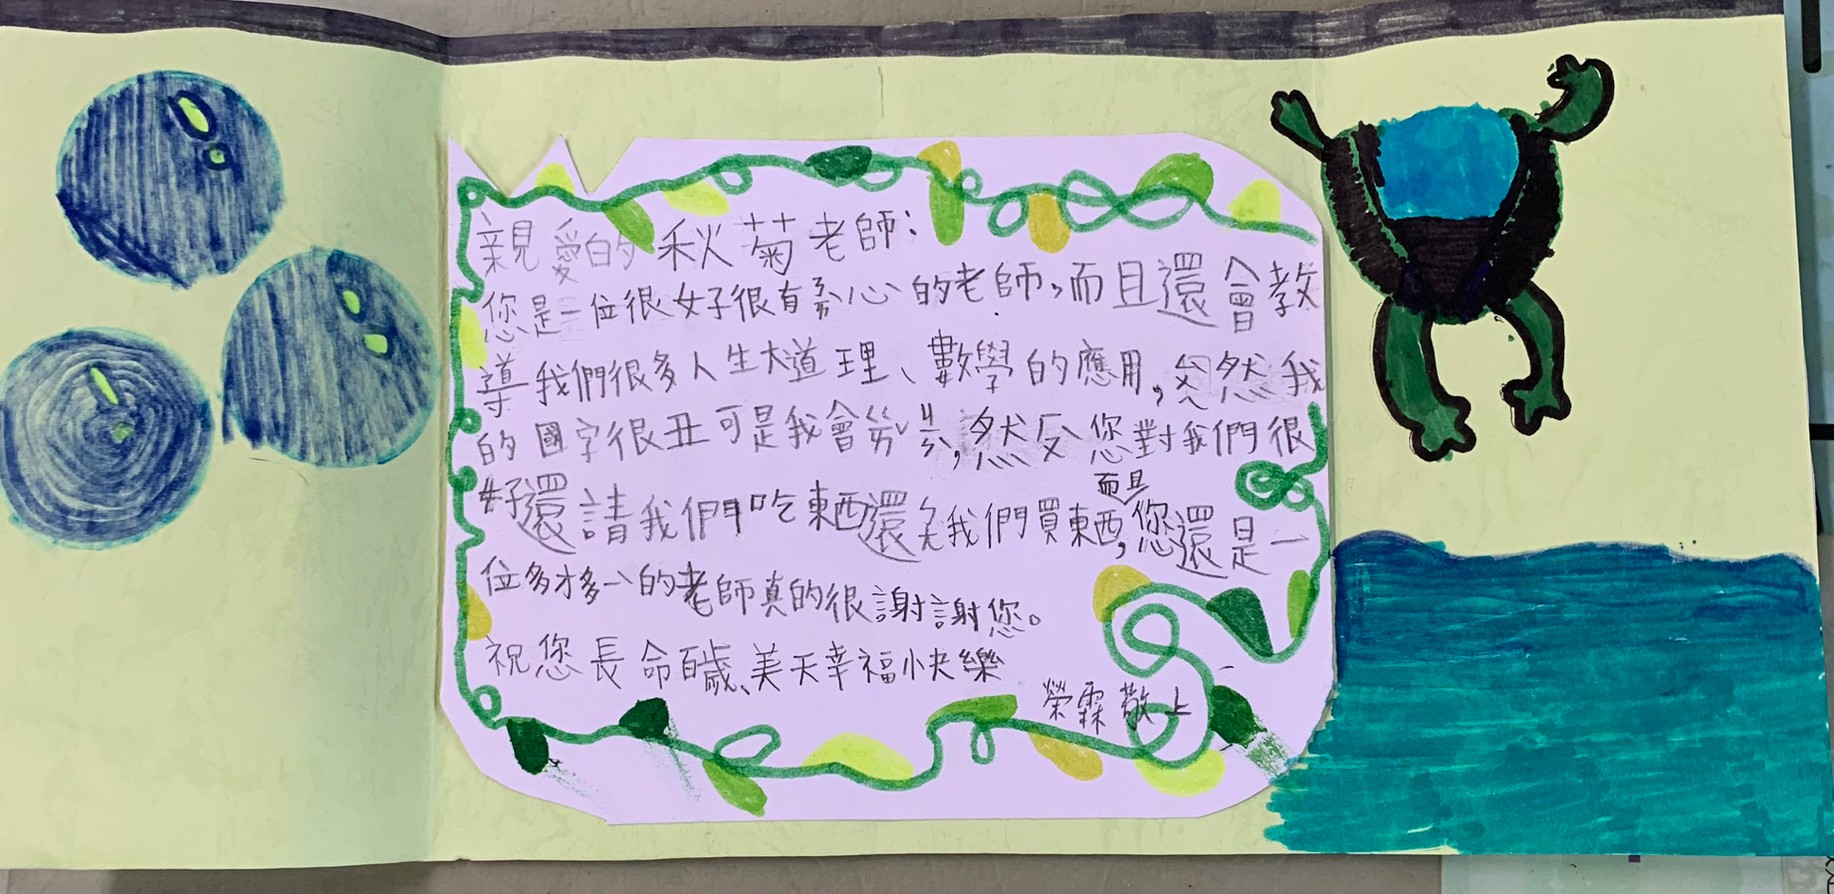 親愛的秋菊老師：
您是一位很好很有ㄞˋ心的老師，而且還會教
導我們很多人生大道理、數學的應用，然我
的國字很丑可是我會ㄋㄨˇㄌ一ˋ，然反您對我們很
好還請我們吃東西還ㄤ我們買東西，而且您還是一
位多才多ㄧˋ的老師真的很謝謝您。
祝您長命百歲、美天幸福快樂
榮霖敬上